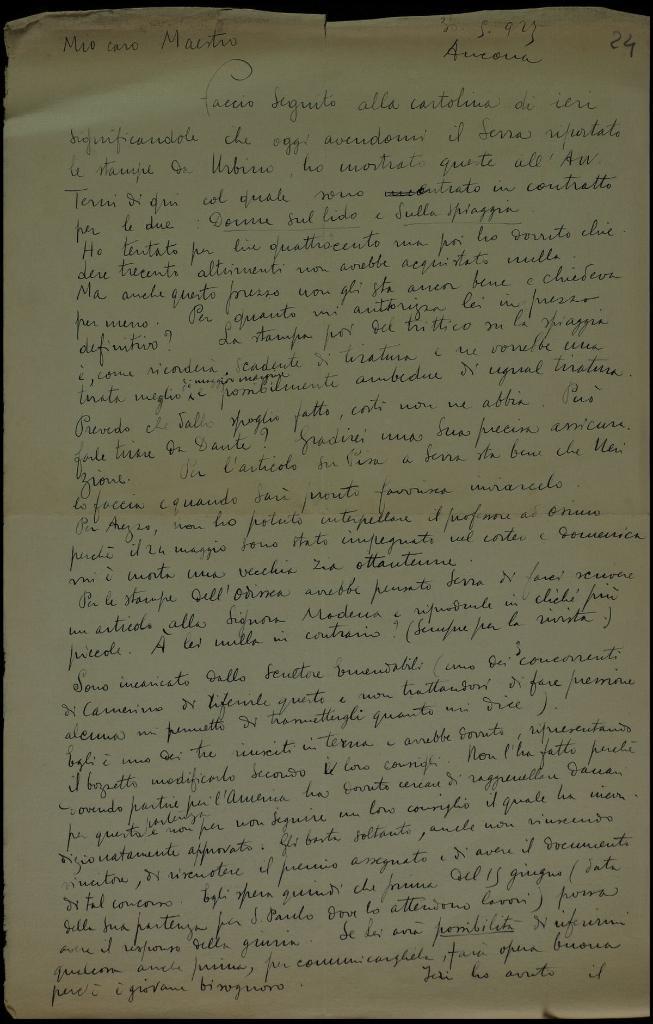 24
30. 5. 923
Mio caro Maestro
Ancona
Faccio seguito alla cartolina di ieri
significandole che oggi avendomi il Serra riportato
le stampe da Urbino, ho mostrato queste all'Avv.
Terni di qui col quale sono entrato in contratto
per le due: Donne sul lido e Sulla spiaggia.
Ho tentato per lire quattrocento ma poi ho dovuto chie-
dere trecento altrimenti non avrebbe acquistato nulla.
Ma anche questo prezzo non gli sta ancor bene e chiedeva
per meno. Per quanto mi autorizza lei in prezzo
definitivo? La stampa poi del trittico su la spiaggia
è, come ricorderà, scadente di tiratura e ne vorrebbe una
tirata meglio e possibilmente ambedue di ugual tiratura.
Prevedo che dallo spoglio fatto, costì non ne abbia. Può
farle tirare da Dante? Gradirei una sua precisa assicura-
zione. Per l'articolo su Pisa a Serra sta bene che Neri
lo faccia e quando sarà pronto favorisca inviarcelo.
Per Arezzo, non ho potuto interpellare il professore ad Osimo
perchè il 24 maggio sono stato impegnato nel corteo e domenica
mi è morta una vecchia zia ottantenne.
Per le stampe dell'Odissea avrebbe pensato Serra di farci scrivere
un articolo alla Signora Modena e riprodurle in clichè più
piccole. À lei nulla in contrario? (sempre per la rivista.)
Sono incaricato dallo Scultore Emendabili (uno dei 3 concorrenti
di Camerino di riferirle questo e non trattandosi di fare pressione
alcuna mi permetto di trasmettergli quanto mi dice).
Egli è uno dei tre riusciti in terna e avrebbe dovuto, ripresentando
il bozzetto modificarlo secondo i loro consigli. Non l'ha fatto perchè
dovendo partire per l'America ha dovuto cercare di raggranellare danari
per questa partenza e non per non seguire un loro consiglio il quale ha incon-
dizionatamente approvato. Gli basta soltanto, anche non riuscendo
vincitore, di riscuotere il premio assegnato e di avere il documento
di tal concorso. Egli spera quindi che prima del 15 giugno (data
della sua partenza per S. Paulo dove lo attendono lavori) possa
avere il responso della giuria. Se lei avrà possibilità di riferirmi
qualcosa anche prima, per comunicarghela, farà opera buona
perchè è giovane bisognoso. Ieri ho avuto il